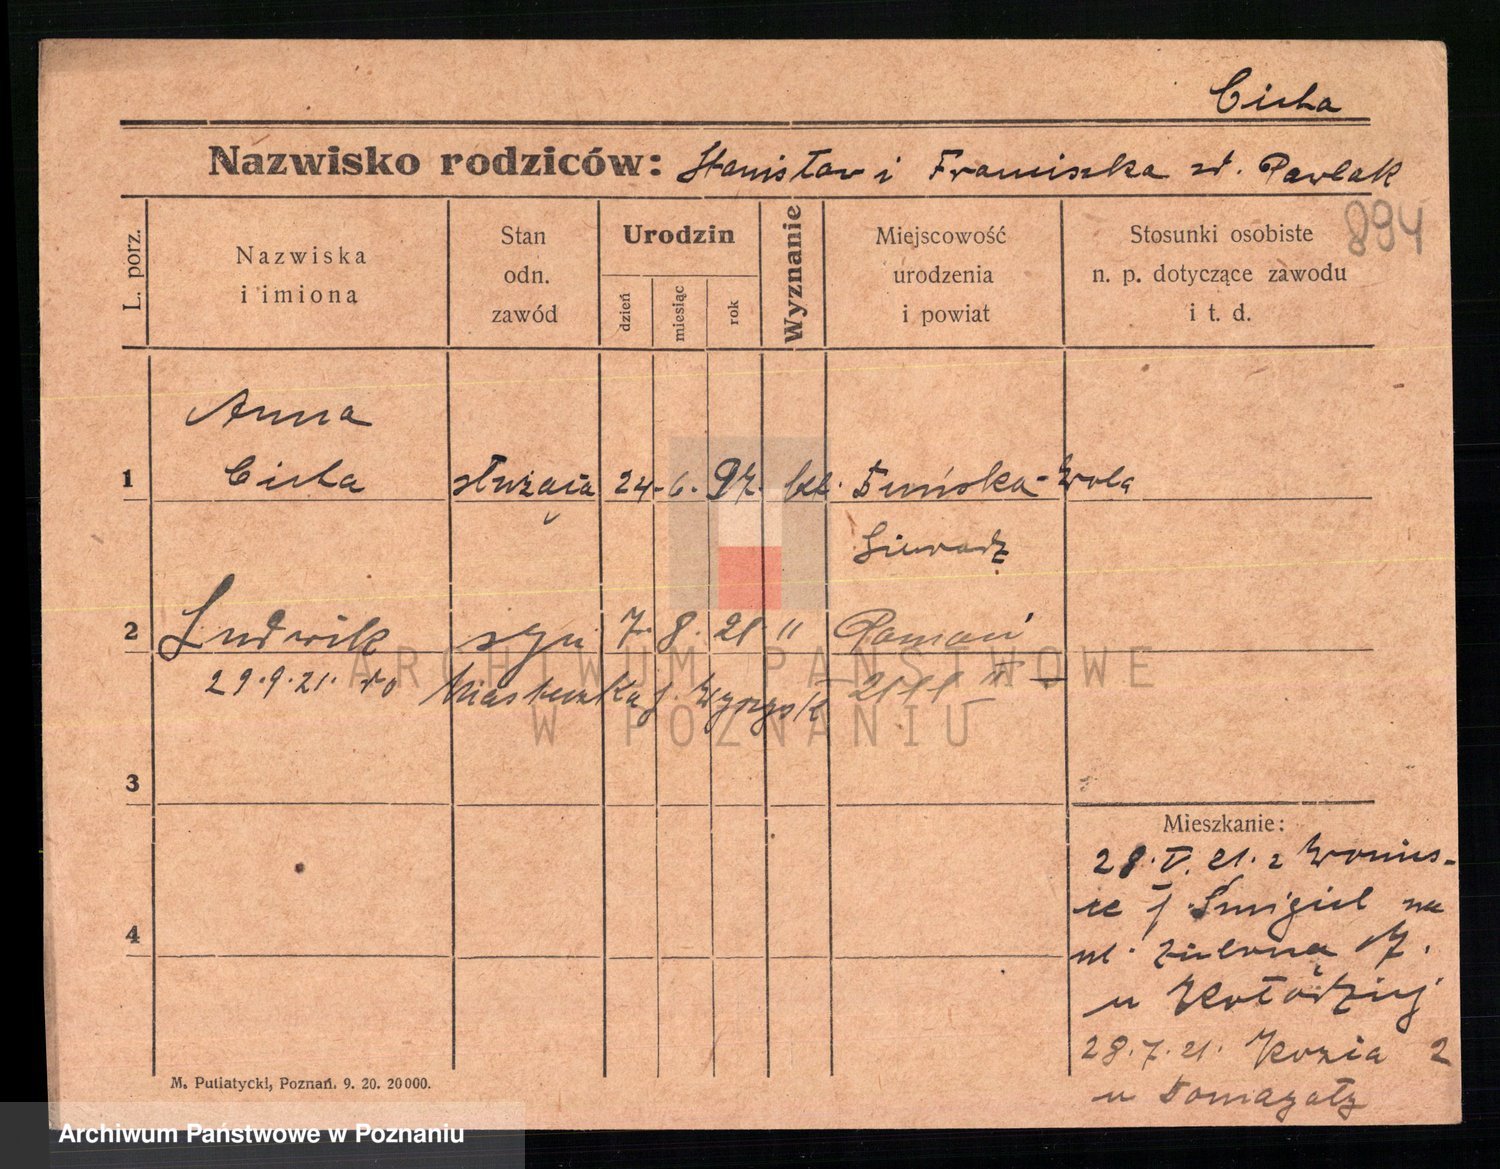 Cicha
Nazwisko rodziców: Stanisław i Franciszka zd. Pawlak
894
L. porz.
Nazwiska
i imiona
Stan
odn.
zawód
Urodzin
dzień
miesiąc
rok
Wyznanie
Miejscowość
urodzenia
i powiat
Stosunki osobiste
n. p. dotyczące zawodu
i t. d.
Anna
1 Cicha służąca 24. 6. 97. kt. Zuńska-Wola
Sieradz
2 Ludwik syn 7. 8. 21 " Poznań
29.9.21. do Miasteczka p. Wyrzysk
3
4
Mieszkanie:
28.V.21. z Wonieś-
će p. Śmigiel na
ul. Zieloną
u Kołodziej
28.7.21. Kozia 2
u
M. Putiatycki, Poznań. 9. 20. 20000.
ARCHIWUM PAŃSTWOWE
W POZNANIU
Archiwum Państwowe w Poznaniu